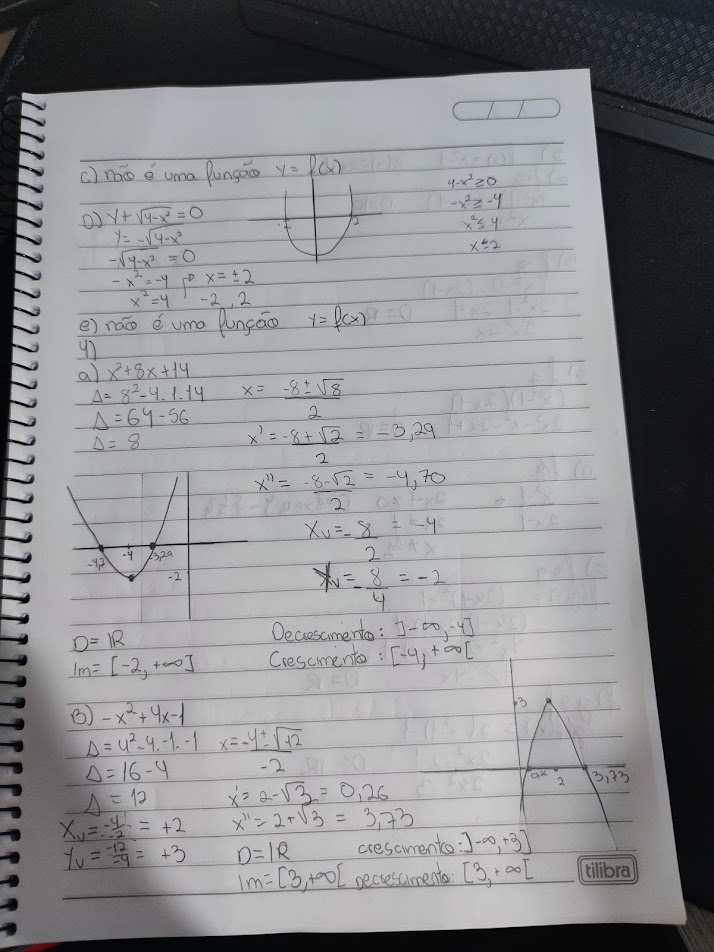 c) não é uma função y = f(x)
D) y + √4-x² = 0
y = -√4-x²
-√4-x² = 0
-x² = -4 → x = ±2
x² = 4 -2, 2
-2 2
4-x² ≥ 0
-x² ≥ -4
x² ≤ 4
x ≤ 2
e) não é uma função y = f(x)
4)
a) x²+8x+14
Δ = 8²-4.1.14
Δ = 64-56
Δ = 8
x = -8±√8
2
x' = -8+√2 = -3,29
2
x'' = -8-√2 = -4,70
2
Xv = -8 = -4
2
Yv = -8 = -2
4
-4,7 -4 -3,29
-2
D = IR
Im = [-2, +∞]
Decrescimento: ]-∞, -4]
Crescimento: [-4, +∞[
B) -x²+4x-1
Δ = 4²-4.-1.-1
Δ = 16-4
Δ = 12
x = -4±√12
-2
x' = 2-√3 = 0,26
x'' = 2+√3 = 3,73
Xv = -4/-2 = +2
Yv = -12/-4 = +3
3
2 3,73
D = IR
Im = [3, +∞[
crescimento: ]-∞, +3]
decrescimento: [3, +∞[
tilibra